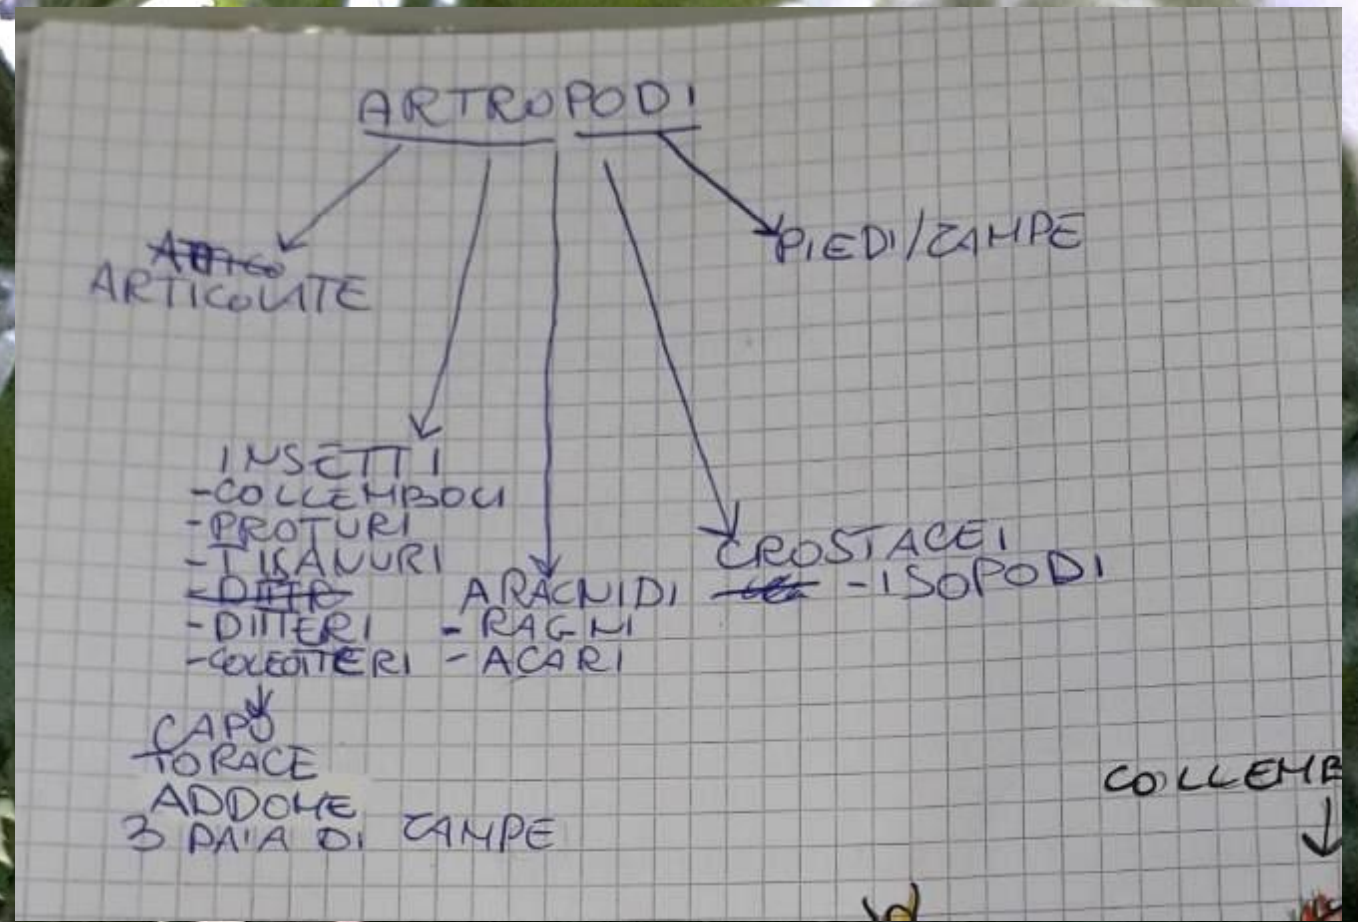 ARTROPODI
PIEDI/ZAMPE
ARTICOLATE
INSETTI
-COLLEMBOLI
-PROTURI
-TISANURI
-DITTERI
-COLEOTTERI
CAPO
TORACE
ADDOME
3 PAIA DI ZAMPE
ARACNIDI
- RAGNI
- ACARI
CROSTACEI
-ISOPODI
COLLEMB